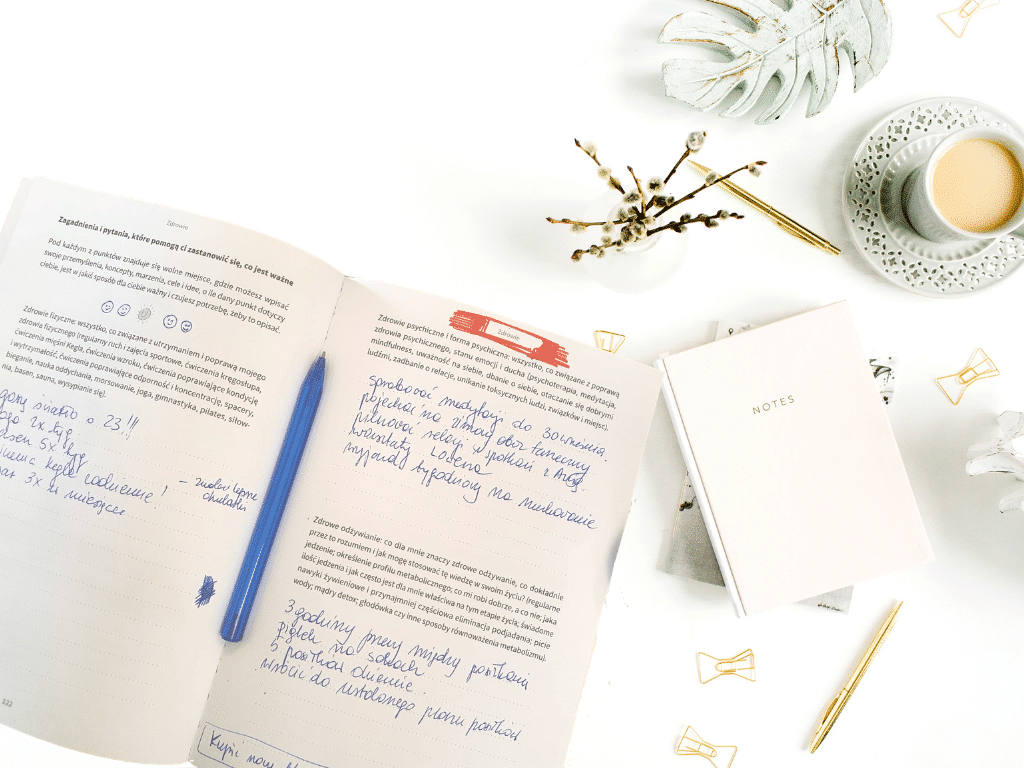 Zdrowie
Zagadnienia i pytania, które pomogą ci zastanowić się, co jest ważne
Pod każdym z punktów znajduje się wolne miejsce, gdzie możesz wpisać
swoje przemyślenia, koncepty, marzenia, cele i idee, o ile dany punkt dotyczy
ciebie, jest w jakiś sposób dla ciebie ważny i czujesz potrzebę, żeby to opisać.
Zdrowie fizyczne: wszystko, co związane z utrzymaniem i poprawą mojego
zdrowia fizycznego (regularny ruch i zajęcia sportowe, ćwiczenia kręgosłupa,
ćwiczenia mięśni Kegla, ćwiczenia wzroku, ćwiczenia poprawiające kondycję
i wytrzymałość, ćwiczenia poprawiające odporność i koncentrację, spacery,
bieganie, nauka oddychania, morsowanie, joga, gimnastyka, pilates, siłow-
nia, basen, sauna, wysypianie się).
światło o 23!!
2x tyg
5x tyg
Kegla codziennie!
3x w miesiącu
- znaleźć lepsze
122
Zdrowie
Zdrowie psychiczne i forma psychiczna: wszystko, co związane z poprawą
zdrowia psychicznego, stanu emocji i ducha (psychoterapia, medytacja,
mindfulness, uważność na siebie, dbanie o siebie, otaczanie się dobrymi
ludźmi, zadbanie o relacje, unikanie toksycznych ludzi, związków i miejsc).
spróbować medytacji do 30 września
pojechać na zimowy obóz taneczny
pilnować relacji i spotkań z
warsztaty Lorena!
wyjazdy tygodniowy na nurkowanie
Zdrowe odżywianie: co dla mnie znaczy zdrowe odżywanie, co dokładnie
przez to rozumiem i jak mogę stosować tę wiedzę w swoim życiu? (regularne
jedzenie; określenie profilu metabolicznego; co mi robi dobrze, a co nie; jaka
ilość jedzenia i jak często jest dla mnie właściwa na tym etapie życia; świadome
nawyki żywieniowe i przynajmniej częściowa eliminacja podjadania; picie
wody; mądry detox; głodówka czy inne sposoby równoważenia metabolizmu).
3 godziny przerwy między posiłkami
piątek na sokach
5 posiłków dziennie.
wrócić do ustalonego planu posiłków
Kupić nowy
NOTES